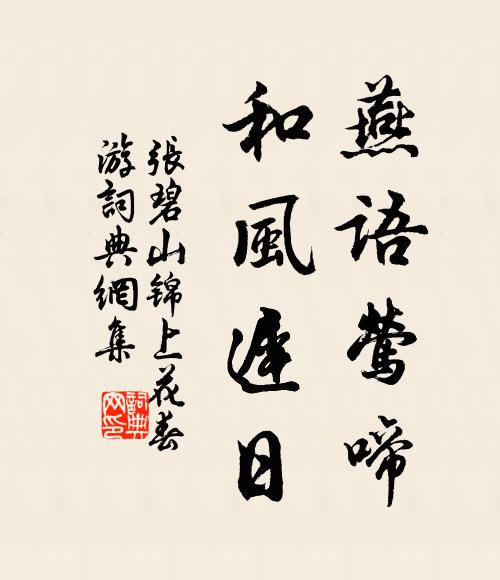 燕語鶯啼
和風遲日
張碧山錦上花春
游詞典網集
詞典
网印